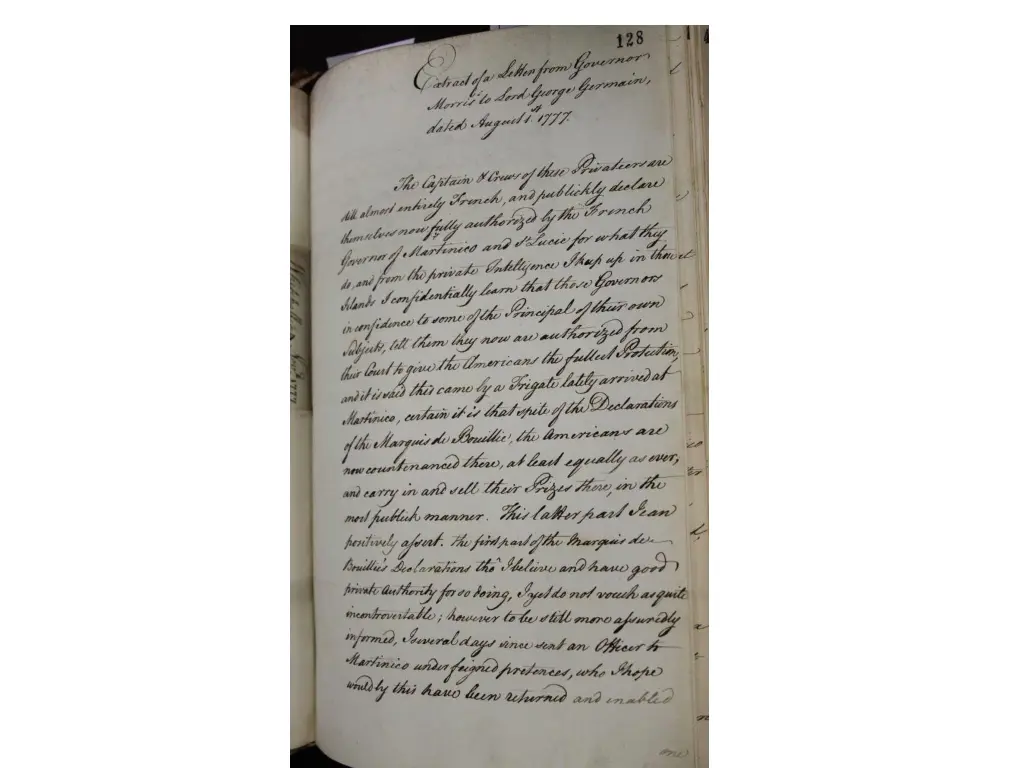 128
Extract of a Letter from Governor
Morris to Lord George Germain,
dated August 1st 1777.
The Captain & Crews of these Privatiers are
still almost entirely French, and publickly declare
themselves now fully authorized by the French
Governor of Martinico and St Lucie for what they
do, and from the private Intelligence I keep up in those
Islands I confidentially learn that those Governors
in confidence to some of the Principal of their own
Subjects, tell them they now are authorized from
their Court to give the Americans the fullest Protection,
and it is said this came by a Frigate lately arrived at
Martinico, certain it is that spite of the Declarations
of the Marquis de Bouillie, the Americans are
now countenanced there, at least equally as ever,
and carry in and sell their Prizes there, in the
most publick manner. This latter part I can
positively assert. The first part of the Marquis de
Bouillie's Declarations tho' I believe and have good
private Authority for so doing, I yet do not vouch as quite
incontrovertable; however to be still more assuredly
informed, I several days since sent an Officer to
Martinico under feigned pretences, who I hope
would by this have been returned and enabled
me